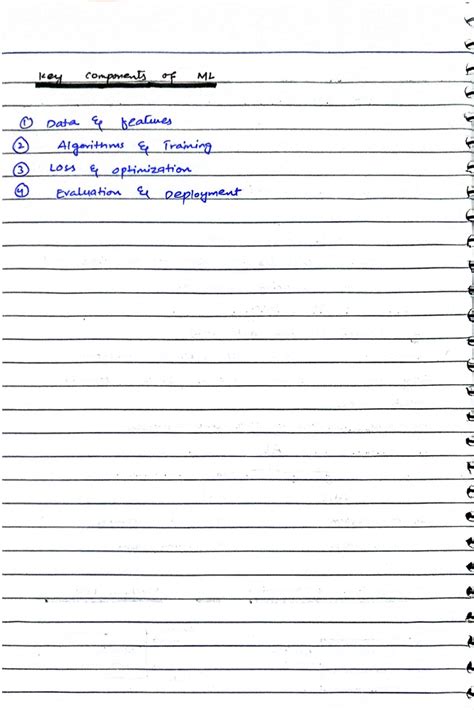 Key Components of ML
① Data & features
② Algorithms & Training
③ Loss & optimization
④ Evaluation & Deployment